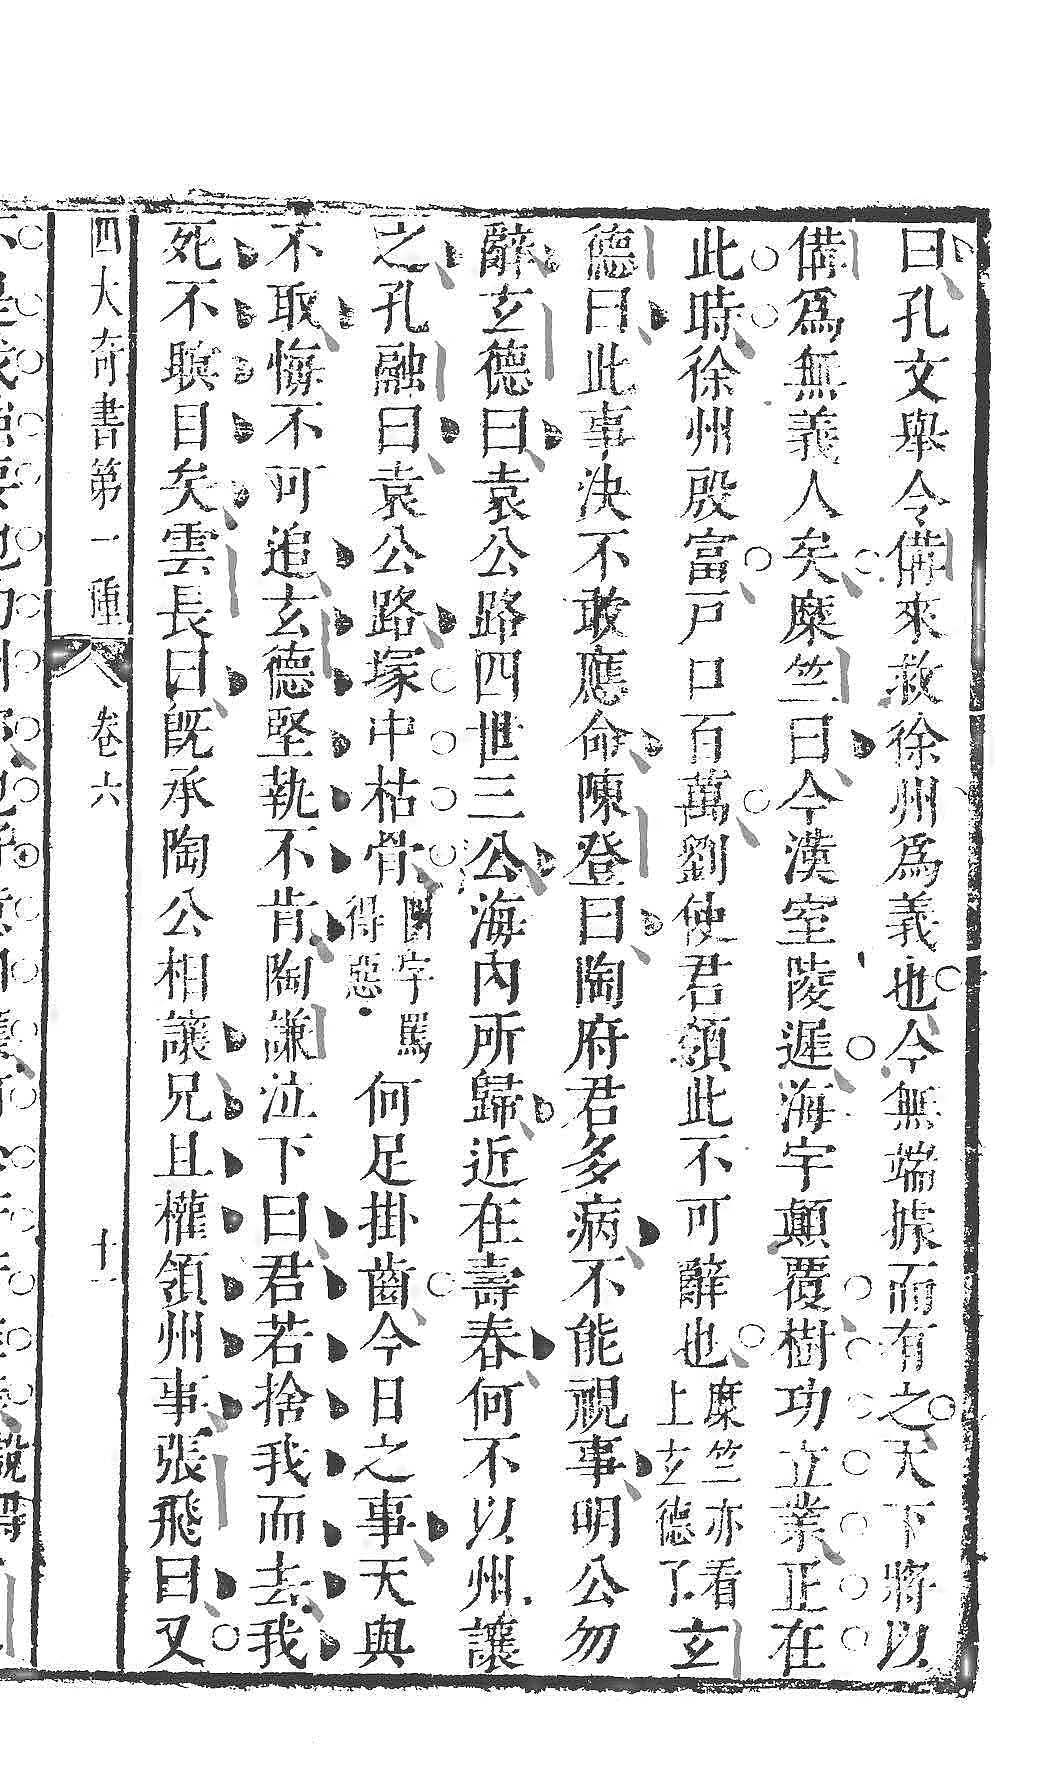 曰孔文舉令備來救徐州爲義也今無端據而有之天下將以
備爲無義人矣糜竺曰今漢室陵遲海宇顛覆樹功立業正在
此時徐州殷富戸口百萬劉使君領此不可辭也糜竺亦看上玄德了玄
德曰此事決不敢應命陳登曰陶府君多病不能視事明公勿
辭玄德曰袁公路四世三公海內所歸近在壽春何不以州讓
之孔融曰袁公路塚中枯骨四字罵得惡何足掛齒今日之事天與
不取悔不可追玄德堅執不肯陶謙泣下曰君若捨我而去我
死不瞑目矣雲長曰旣承陶公相讓兄且權領州事張飛曰又
四大奇書第一種 卷六 十一